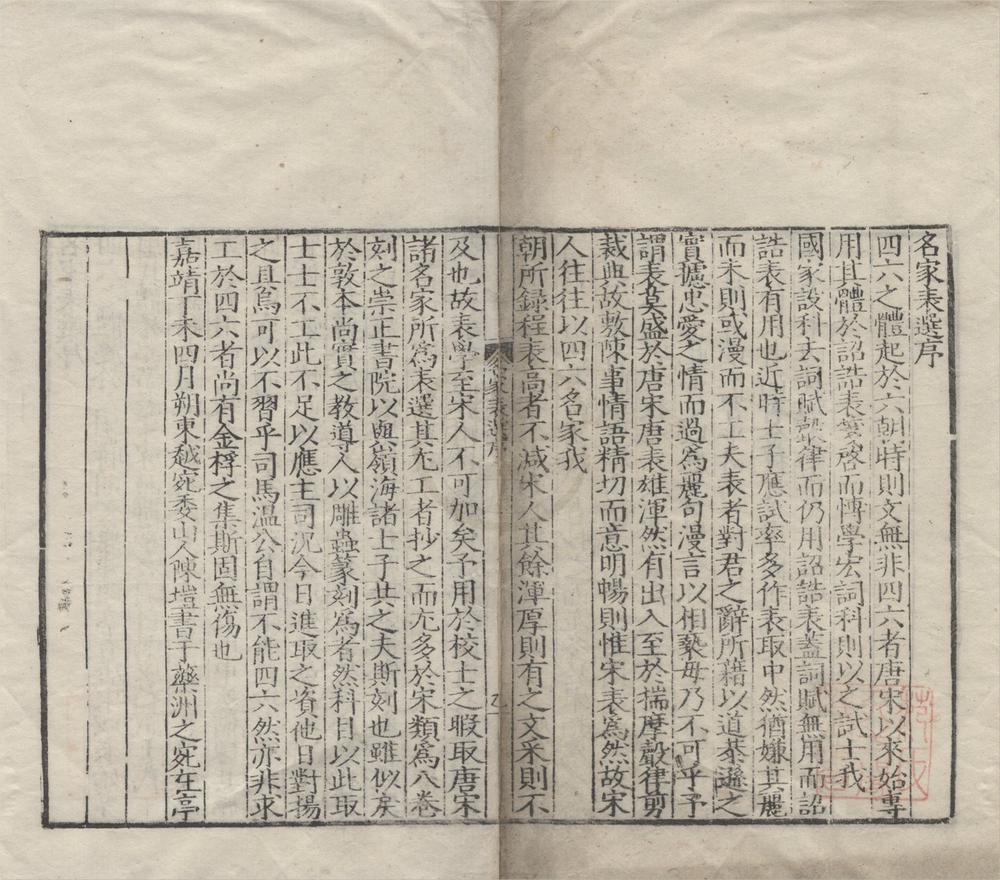 名家表選序
四六之體起於六朝時則文無非四六者唐宋以來始專
用其體於詔誥表箋啓而慱學宏詞科則以之試士我
國家設科去詞賦聲律而仍用詔誥表蓋詞賦無用而詔
誥表有用也近時士子應試率多作表取中然猶嫌其麗
而未則或漫而不工夫表者對君之辭所藉以道恭遜之
實攄忠愛之情而過爲麗句漫言以相褻毋乃不可乎予
謂表莫盛於唐宋唐表雄渾然有出入至於揣摩聲律剪
裁典故敷陳事情語精切而意明暢則惟宋表爲然故宋
人往往以四六名家我
朝所録程表高者不減宋人其餘渾厚則有之文采則不
名家表選序
及也故表學至宋人不可加矣予用於校士之暇取唐宋
諸名家所爲表選其尤工者抄之而尤多於宋類爲八卷
刻之崇正書院以與嶺海諸士子共之夫斯刻也雖似戾
於敦本尚實之教導人以雕蟲篆刻爲者然科目以此取
士士不工此不足以應主司況今日進取之資他日對揚
之具烏可以不習乎司馬温公自謂不能四六然亦非求
工於四六者尚有金桴之集斯固無傷也
嘉靖丁未四月朔東越宛委山人陳塏書于藥洲之宛在亭